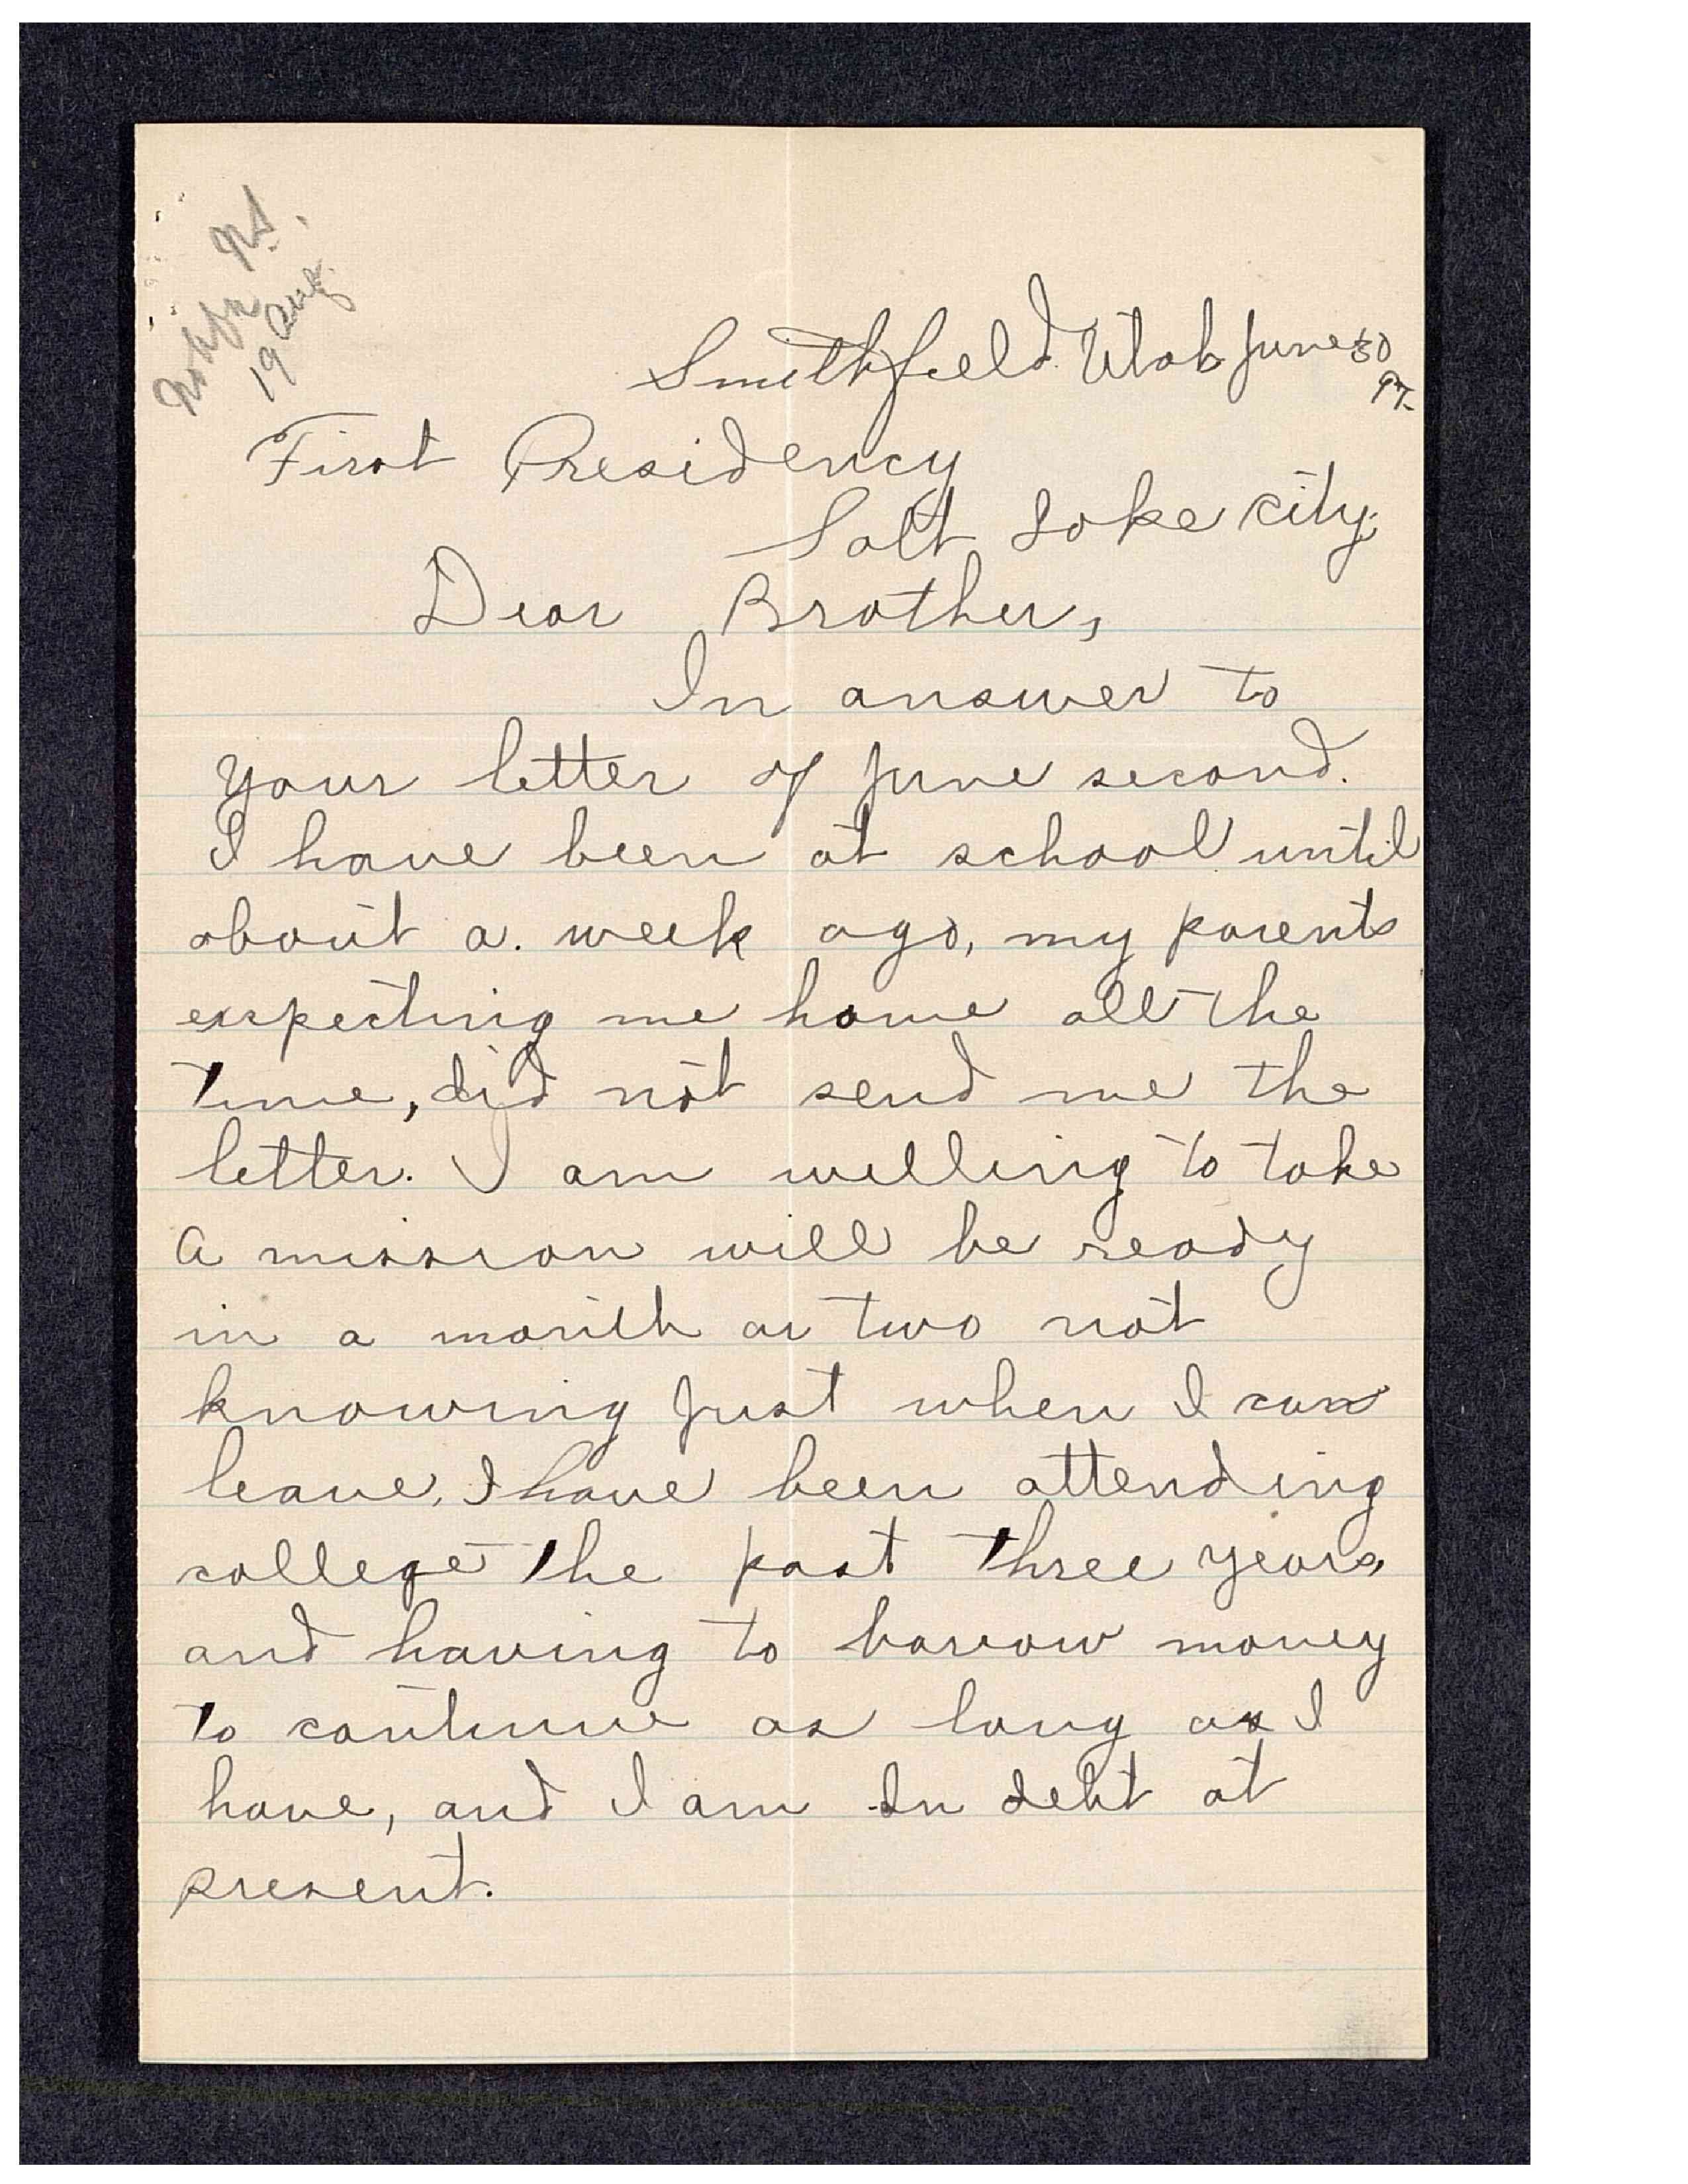 19 Aug.
Smithfield Utah June 30
97.
First Presidency
Salt Lake city.
Dear Brother,
In answer to
your letter of June second.
I have been at school until
about a. week ago, my parents
expecting me home all the
time, did not send me the
letter. I am willing to take
a mission will be ready
in a month or two not
knowing just when I can
leave. I have been attending
college the past three years,
and having to borrow money
to continue as long as I
have, and I am In debt at
present.